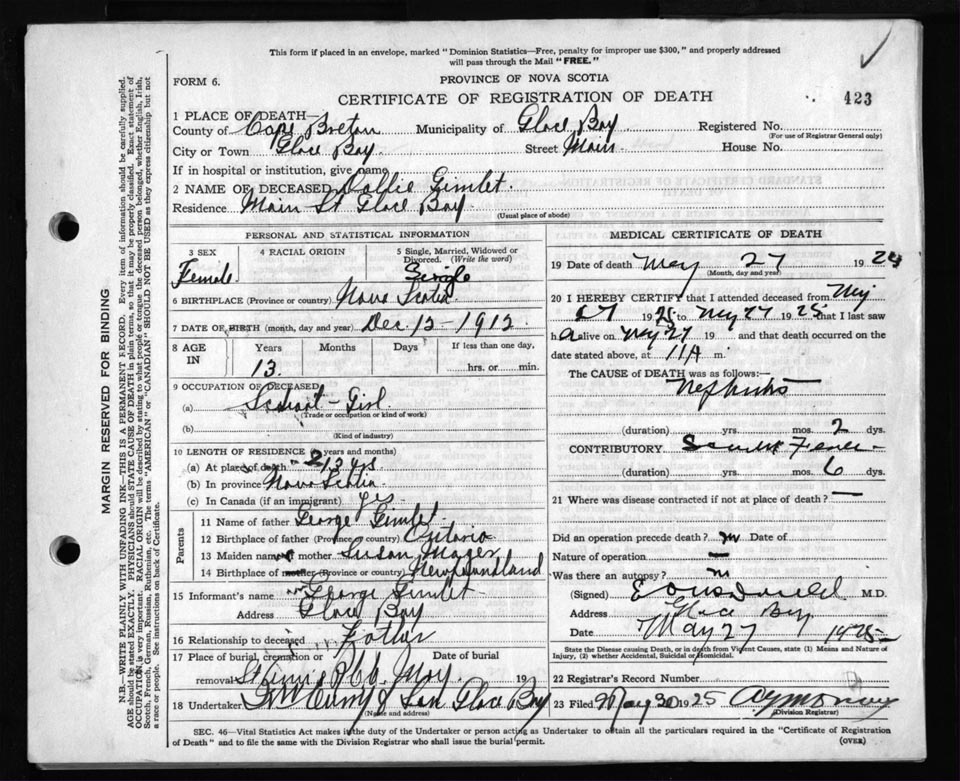 This form if placed in an envelope, marked "Dominion Statistics—Free, penalty for improper use $300," and properly addressed
will pass through the Mail "FREE."
FORM 6.
PROVINCE OF NOVA SCOTIA
CERTIFICATE OF REGISTRATION OF DEATH
423
1 PLACE OF DEATH—
County of Cape Breton Municipality of Glace Bay Registered No.
(For use of Registrar General only)
City or Town Glace Bay Street Main House No.
If in hospital or institution, give name
2 NAME OF DECEASED Dollie Gimlet.
Residence Main St Glace Bay
(Usual place of abode)
PERSONAL AND STATISTICAL INFORMATION
3 SEX
Female
4 RACIAL ORIGIN
5 Single, Married, Widowed or
Divorced. (Write the word)
Single
6 BIRTHPLACE (Province or country) Nova Scotia
7 DATE OF BIRTH (month, day and year) Dec 12-1912
8 AGE IN
Years Months Days If less than one day,
13. hrs. or min.
9 OCCUPATION OF DECEASED
(a) School-Girl
(Trade or occupation or kind of work)
(b)
(Kind of industry)
10 LENGTH OF RESIDENCE (in years and months)
(a) At place of death 13 yrs
(b) In province Nova Scotia
(c) In Canada (if an immigrant) yes
Parents
11 Name of father George Gimlet
12 Birthplace of father (Province or country) Ontario
13 Maiden name of mother Susan Mager
14 Birthplace of mother (Province or country) Newfoundland
15 Informant's name George Gimlet
Address Glace Bay
16 Relationship to deceased Father
17 Place of burial, cremation or removal Date of burial
May 19
18 Undertaker & Son Glace Bay
(Name and address)
MEDICAL CERTIFICATE OF DEATH
19 Date of death May 27 1924
(Month, day and year)
20 I HEREBY CERTIFY that I attended deceased from May
27 1925 to May 27 1925 that I last saw
h alive on May 27 19 and that death occurred on the
date stated above, at 11 A m.
The CAUSE of DEATH was as follows:—
Nephritis
(duration) yrs. mos. 2 dys.
CONTRIBUTORY Scarlet Fever
(duration) yrs. mos. 6 dys.
21 Where was disease contracted if not at place of death? —
Did an operation precede death? no Date of
Nature of operation —
Was there an autopsy? no
(Signed) M.D.
Address Glace Bay
Date May 27 1925
State the Disease causing Death, or in death from Violent Causes, state (1) Means and Nature of
Injury, (2) whether Accidental, Suicidal or Homicidal.
22 Registrar's Record Number
23 Filed May 30 1925
(Division Registrar)
SEC. 46—Vital Statistics Act makes it the duty of the Undertaker or person acting as Undertaker to obtain all the particulars required in the "Certificate of Registration
of Death" and to file the same with the Division Registrar who shall issue the burial permit. (OVER)
MARGIN RESERVED FOR BINDING
N.B.—WRITE PLAINLY, WITH UNFADING INK—THIS IS A PERMANENT RECORD. Every item of information should be carefully supplied.
AGE should be stated EXACTLY. PHYSICIANS should STATE CAUSE OF DEATH in plain terms, so that it may be properly classified. Exact statement of
OCCUPATION is very important. RACIAL ORIGIN will be described by stating to what people or tongue the deceased person belonged, whether English, Irish,
Scotch, French, German, Russian, Ruthenian, etc. The terms "AMERICAN" or "CANADIAN" SHOULD NOT BE USED as they express citizenship but not
a race or people. See instructions on back of Certificate.